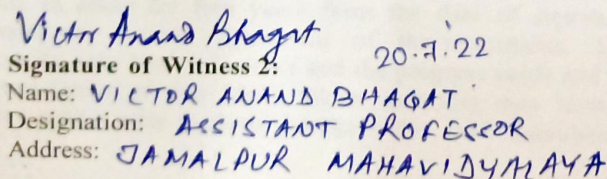 Victor Anand Bhagat
20.7.22
Signature of Witness 2:
Name: VICTOR ANAND BHAGAT
Designation: ASSISTANT PROFESSOR
Address: JAMALPUR MAHAVIDYALAYA